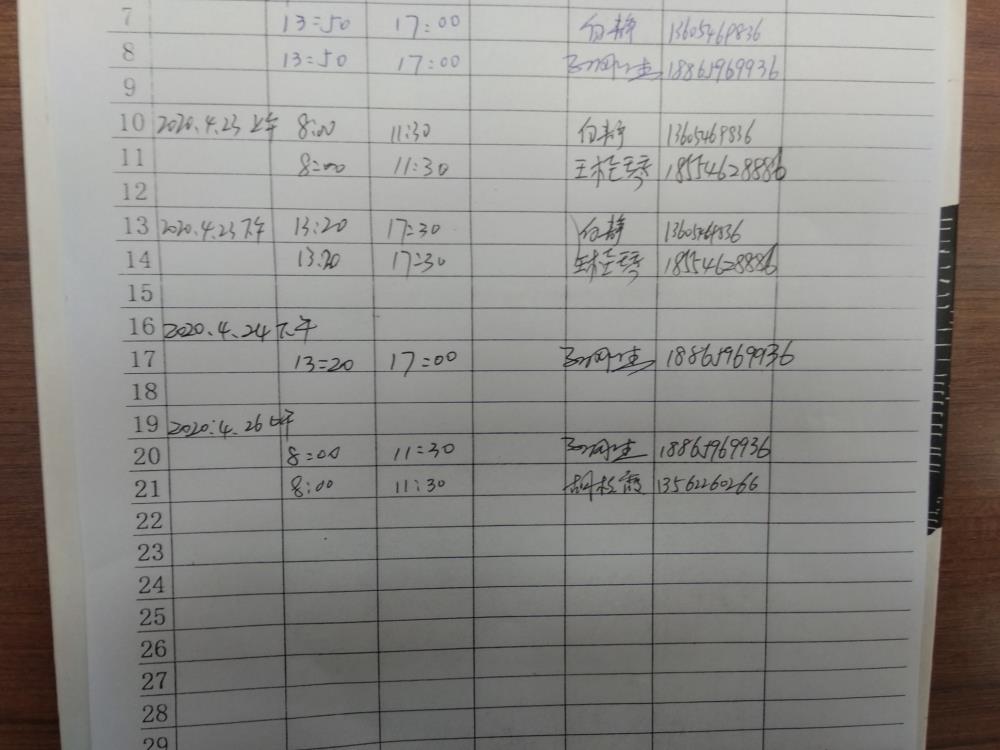 7 13:50 17:00 白静 13605469836
8 13:50 17:00 18865969936
9
10 2020.4.23上午 8:00 11:30 白静 13605469836
11 8:00 11:30 王桂琴 18554628886
12
13 2020.4.23下午 13:20 17:30 白静 13605469836
14 13:20 17:30 王桂琴 18554628886
15
16 2020.4.24下午
17 13:20 17:00 18865969936
18
19 2020.4.26上午
20 8:00 11:30 18865969936
21 8:00 11:30 胡 13562260266
22
23
24
25
26
27
28
29